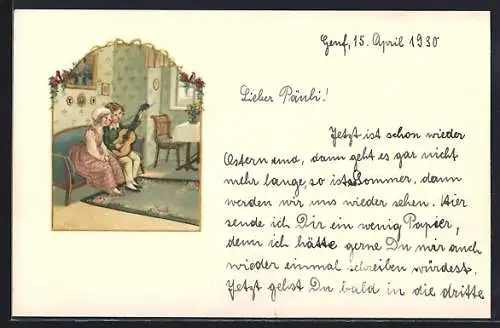 Genf, 15. April 1930
Lieber Päuli!
Jetzt ist schon wieder
Ostern und, dann geht es gar nicht
mehr lange, so ist Sommer, dann
werden wir uns wieder sehen. Hier
sende ich Dir ein wenig Papier,
denn ich hätte gerne Du mir auch
wieder einmal schreiben würdest.
Jetzt gehst Du bald in die dritte